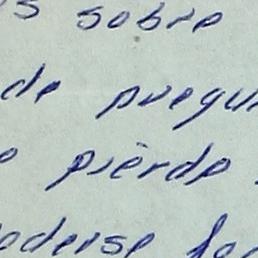 s sobre
de pregu
o piërde
oderse